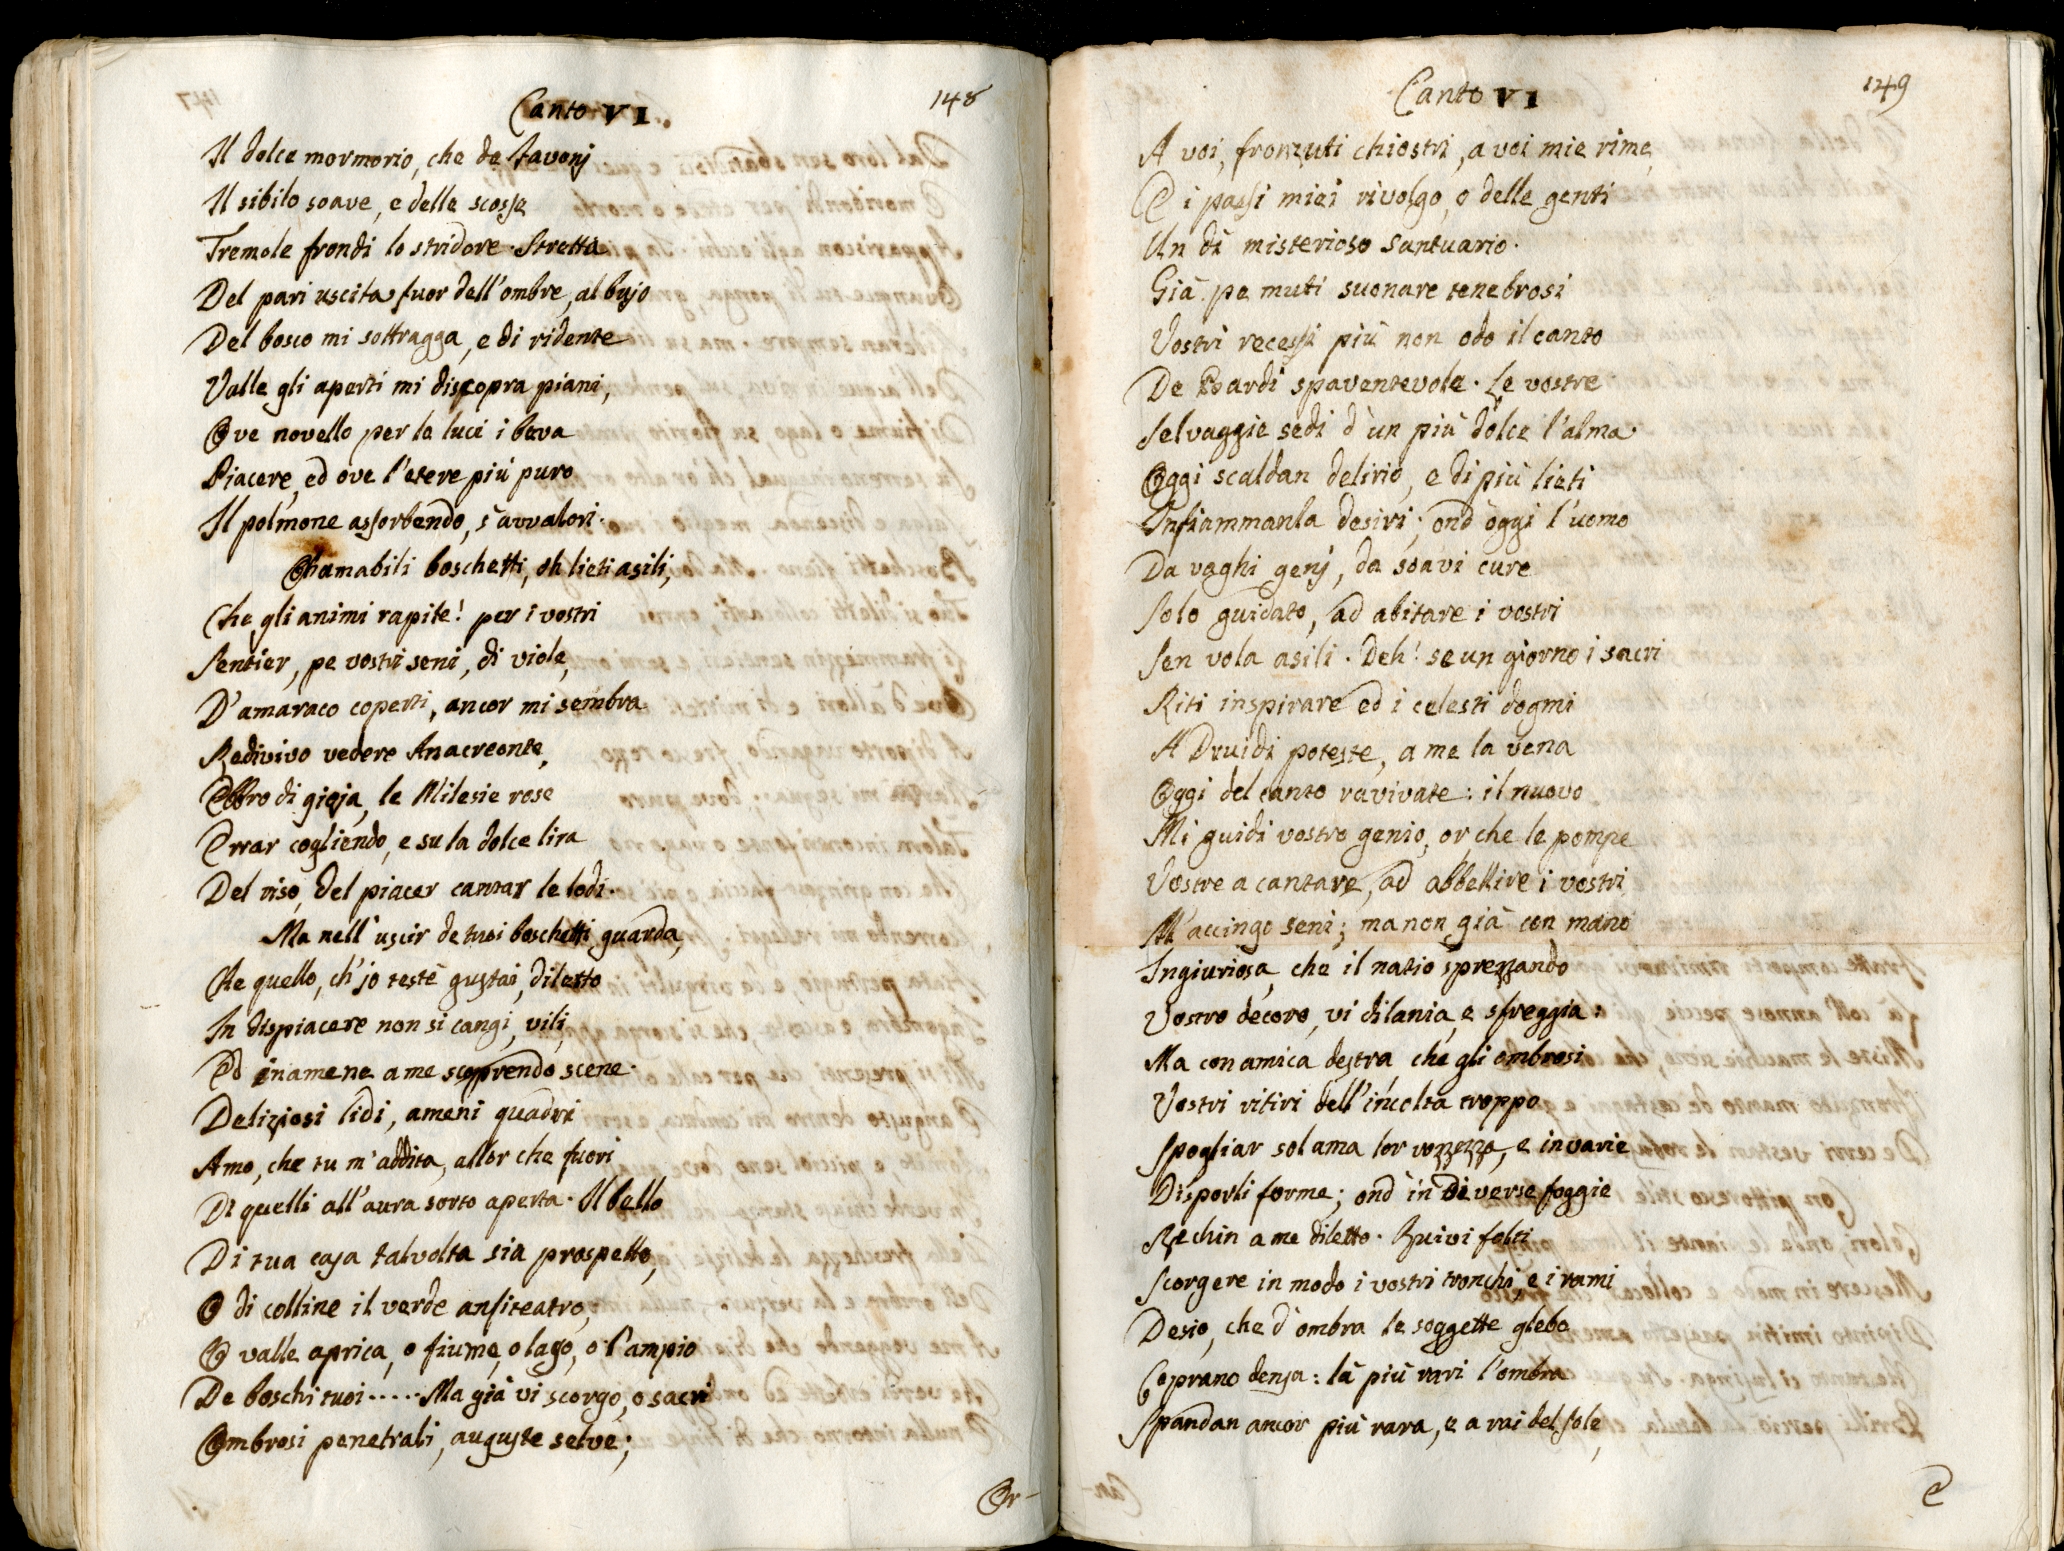 Canto VI.
148
Il dolce mormorio, che de favonj
Il sibilo soave, e delle scosse
Tremole frondi lo stridore. Stretta
Del pari uscita fuor dell'ombre, al bujo
Del bosco mi sottragga, e di ridente
Valle gli aperti mi discopra piani,
Ove novello per le luci i beva
Piacere, ed ove l'etere più puro
Il polmone assorbendo, s'avvalori.
Oh amabili boschetti, oh lieti asili,
Che gli animi rapite! per i vostri
Sentier, pe vostri seni, di viole,
D'amaraco coperti, ancor mi sembra
Redivivo vedere Anacreonte,
Ebbro di gioja, le Milesie rose
Errar cogliendo, e su la dolce lira
Del riso, del piacer cantar le lodi.
Ma nell'uscir de tuoi boschetti guarda,
Che quello, ch'jo testè gustai, diletto
In dispiacere non si cangi, vili,
Ed inamene a me scoprendo scene.
Deliziosi lidi, ameni quadri
Amo, che tu m'addita, allor che fuori
Di quelli all'aura sorto aperta. Il bello
Di tua casa talvolta sia prospetto,
O di colline il verde anfiteatro,
O valle aprica, o fiume, o lago, o l'ampio
De boschi tuoi ..... Ma già vi scorgo, o sacri
Ombrosi penetrali, auguste selve;
Or-
Canto VI
149
A voi, fronzuti chiostri, a voi mie rime,
E i passi miei rivolgo, o delle genti
Un dì misterioso Santuario.
Già pe muti suonare tenebrosi
Vostri recessi più non odo il canto
De Bardi spaventevole. Le vostre
Selvaggie sedi d'un più dolce l'alma
Oggi scaldan delirio, e di più lieti
Infiammanla desiri; ond'oggi l'uomo
Da vaghi genj, da soavi cure
Solo guidato, ad abitare i vostri
Sen vola asili. Deh! se un giorno i sacri
Riti inspirare ed i celesti dogmi
A Druidi poteste, a me la vena
Oggi del canto ravivate: il nuovo
Mi guidi vostro genio, or che le pompe
Vostre a cantare, ad abbellire i vostri
M'accingo seni; ma non già con mano
Ingiuriosa, che il natio sprezzando
Vostro decoro, vi dilania, e sfreggia:
Ma con amica destra che gli ombrosi
Vostri ritiri dell'incolta troppo
Spogliar sol ama lor rozzezza, e in varie
Disporli forme; ond'in diverse foggie
Rechin a me diletto. Quivi folti
Scorgere in modo i vostri tronchi, e i rami
Desio, che d'ombra le soggette glebe
Coprano densa: là più rari l'ombra
Spandan ancor più rara, e a rai del Sole,
E